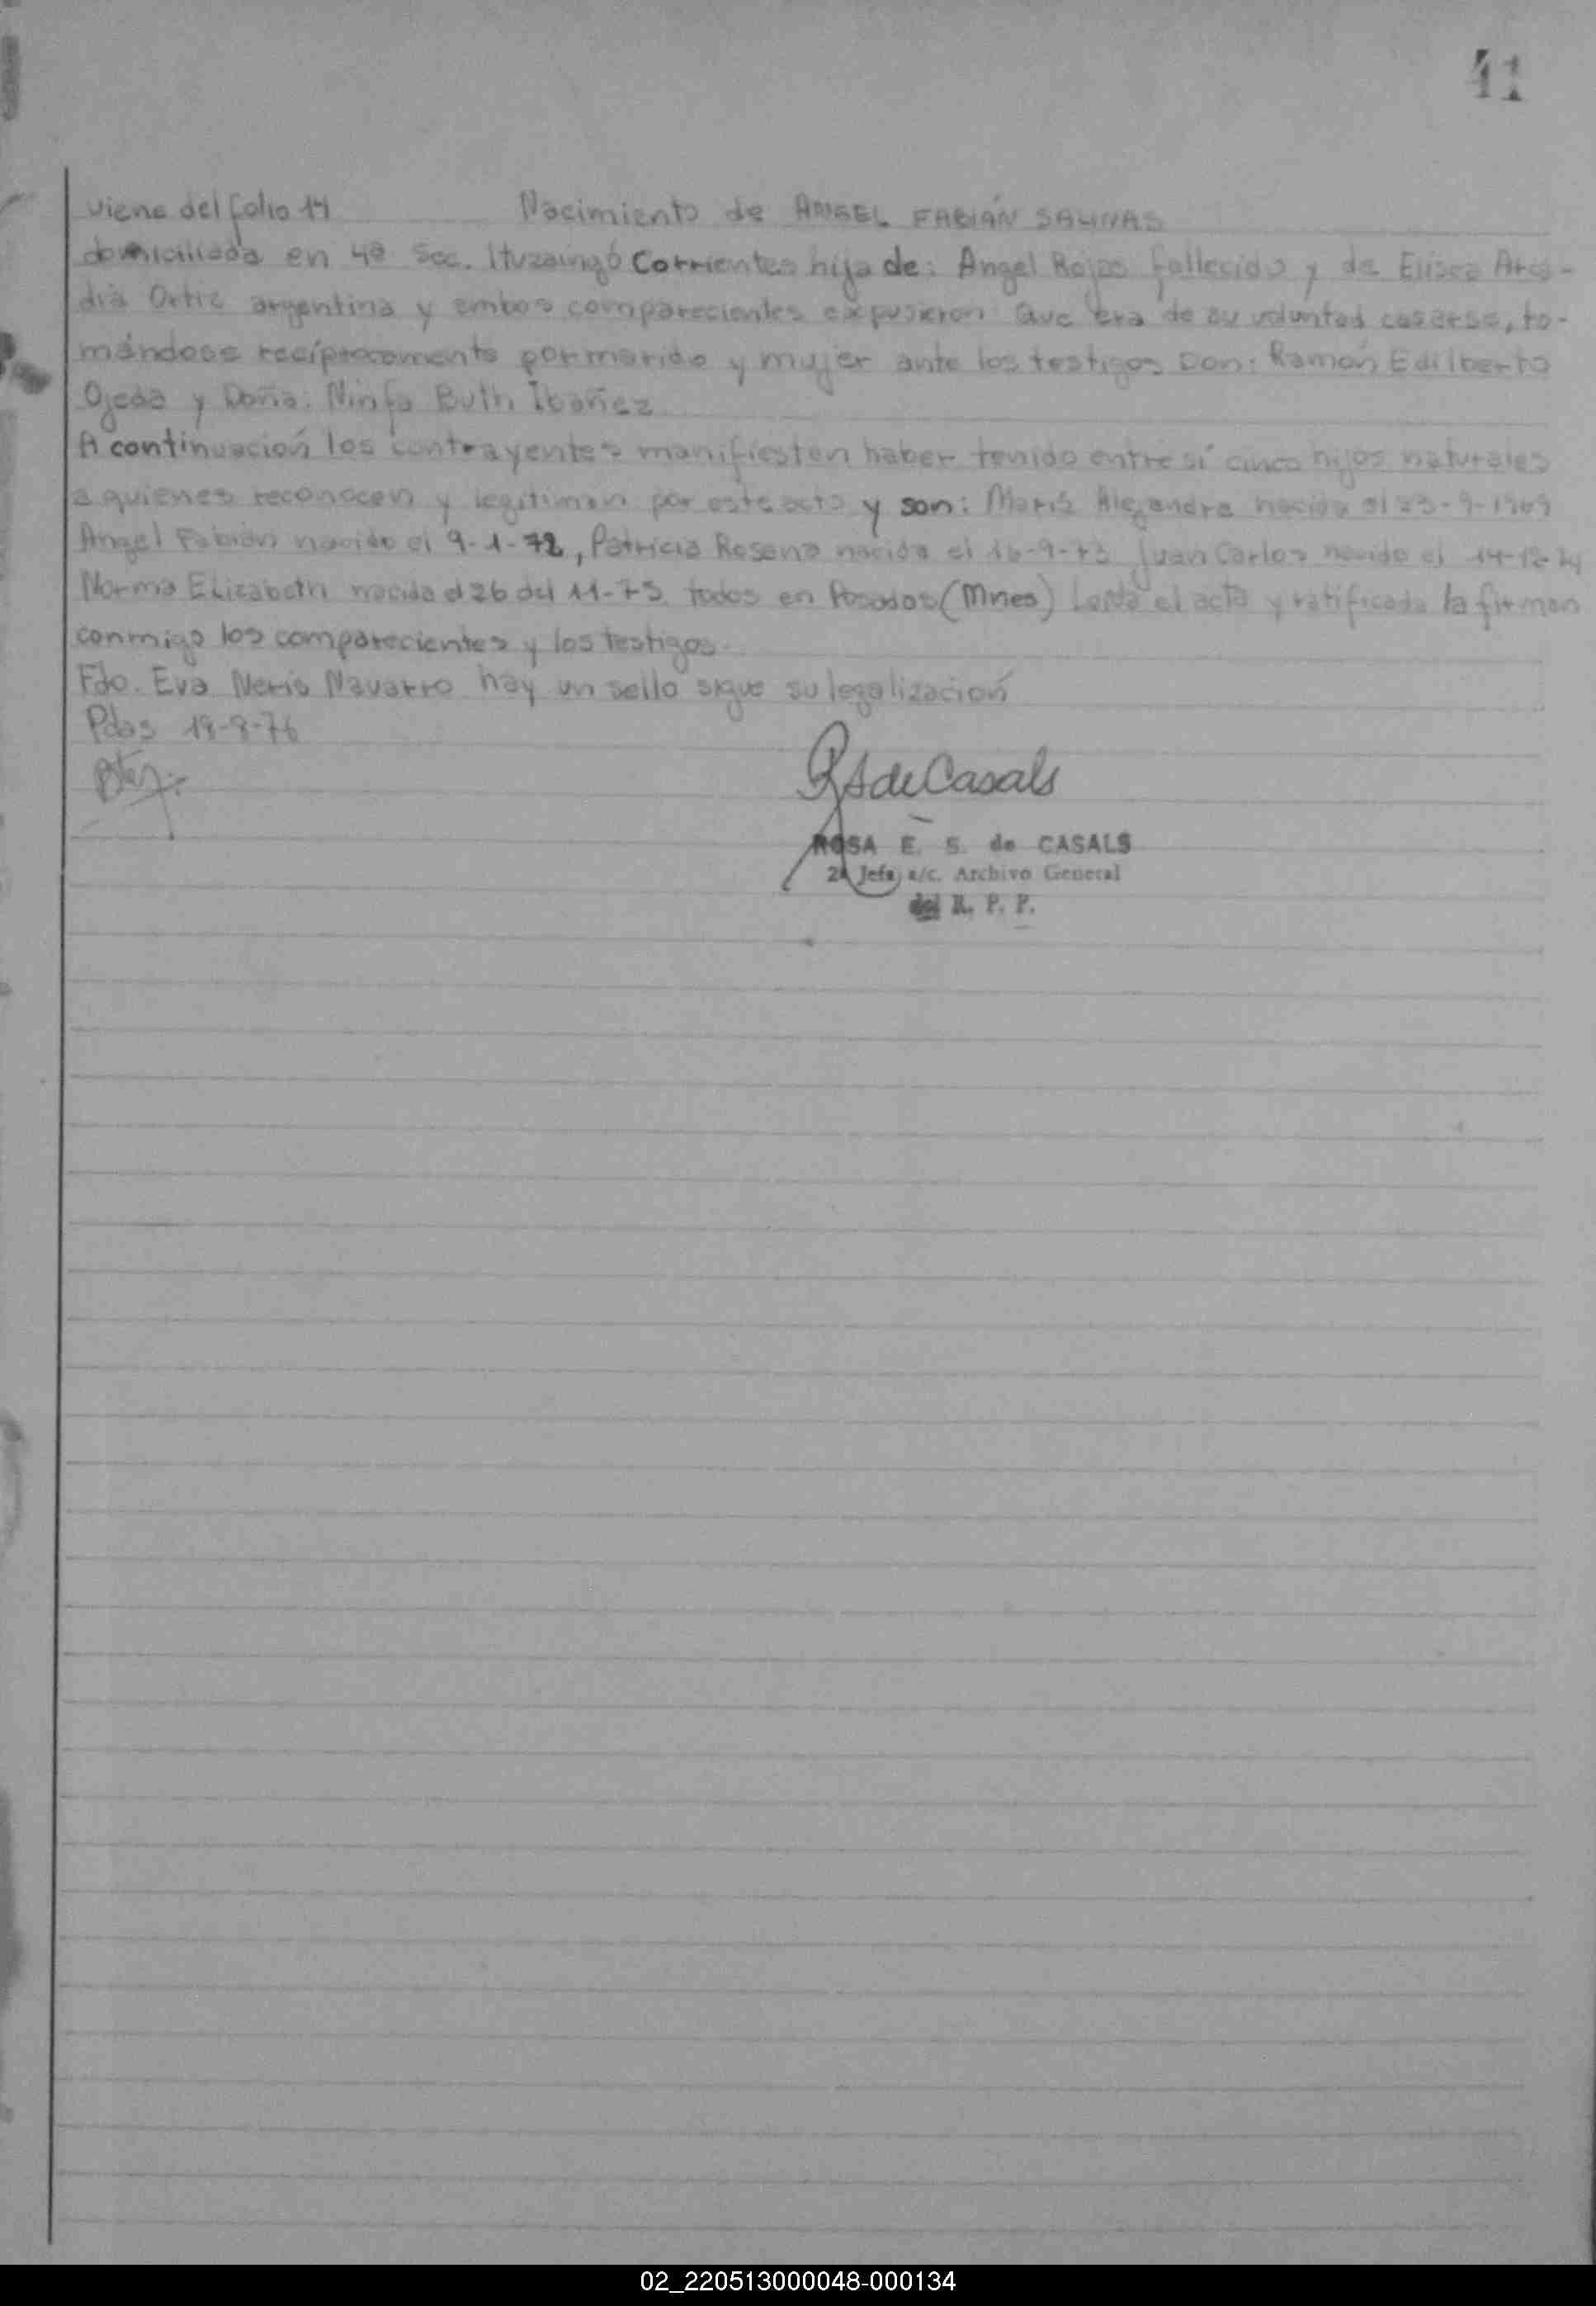 41
viene del folio 14 Nacimiento de ANGEL FABIÁN SALINAS
domiciliada en 4ª Sec. Ituzaingó Corrientes hija de: Angel Rojas fallecido y de Elisea Arca-
dia Ortiz argentina y ambos comparecientes expusieron Que era de su voluntad casarse, to-
mándose recíprocamente por marido y mujer ante los testigos Don: Ramón Edilberto
Ojeda y Doña: Ninfa Ibañez
A continuación los contrayentes manifiestan haber tenido entre sí cinco hijos naturales
a quienes reconocen y legitiman por este acto y son: María Alejandra nacida el 23-9-1969
Angel Fabián nacido el 9-1-72, Patricia Rosana nacida el 16-9-73 Juan Carlos nacido el 14-12-74
Norma Elizabeth nacida el 26 del 11-75 todos en Posadas (Mnes) Leida el acta y ratificada la firman
conmigo los comparecientes y los testigos.
Fdo. Eva Neris Navarro hay un sello sigue su legalización
Pdas 19-8-76
RS de Casals
ROSA E. S. de CASALS
2ª Jefa a/c. Archivo General
del R. P. P.
02_220513000048-000134